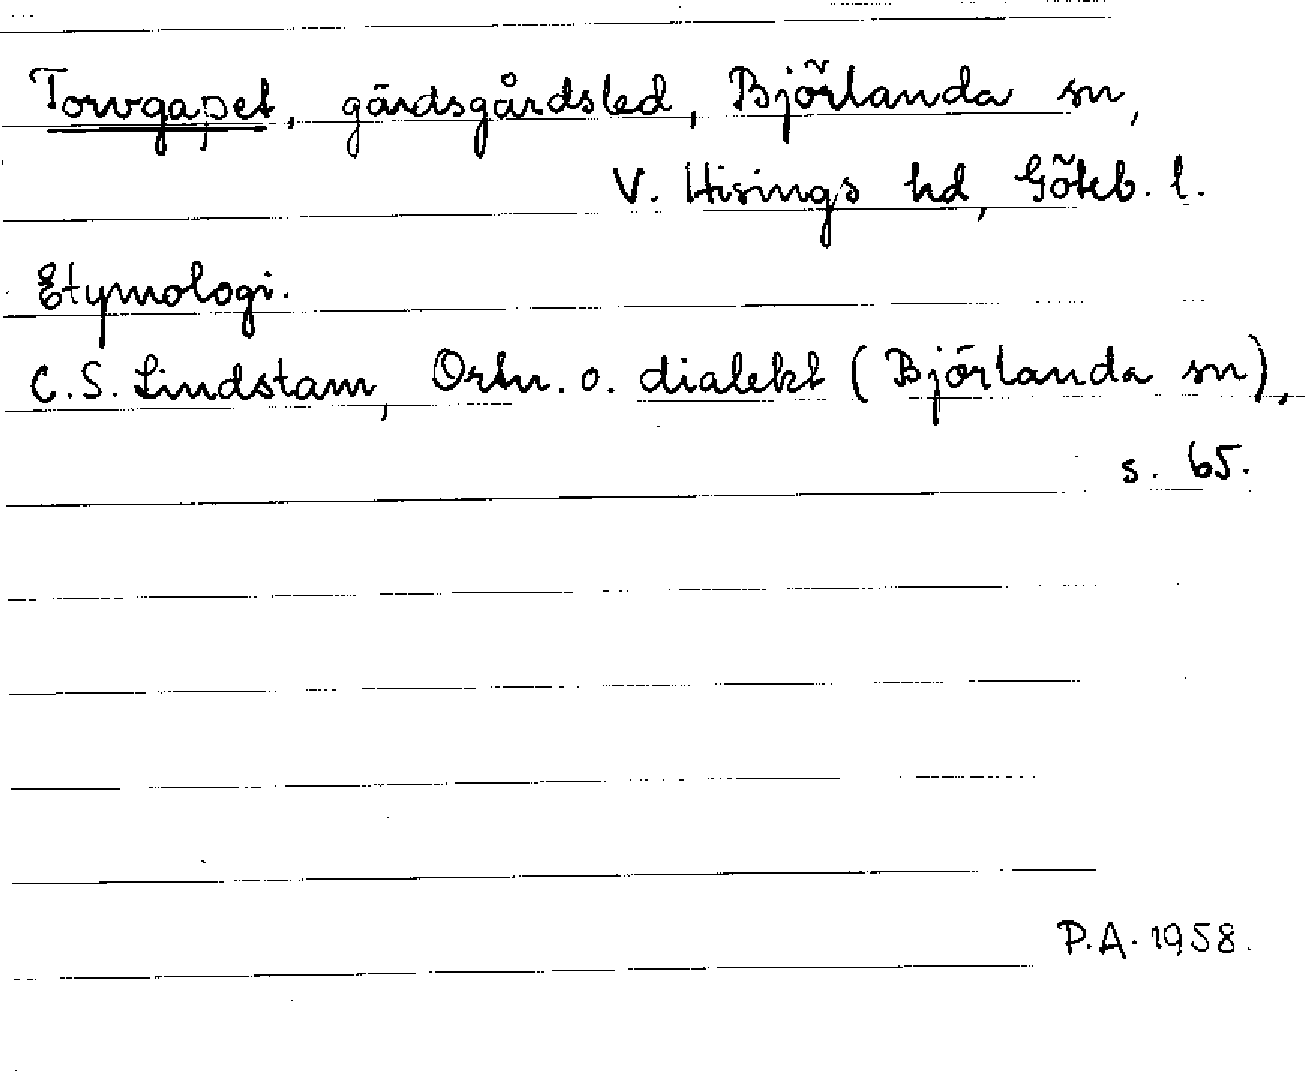 Torvgapet, gärdsgårdsled, Björlanda sn,
V. Hisings hd, Göteb. l.
Etymologi.
C.S. Lindstam, Ortn. o. dialekt (Björlanda sn),
s. 65.
P.A. 1958.